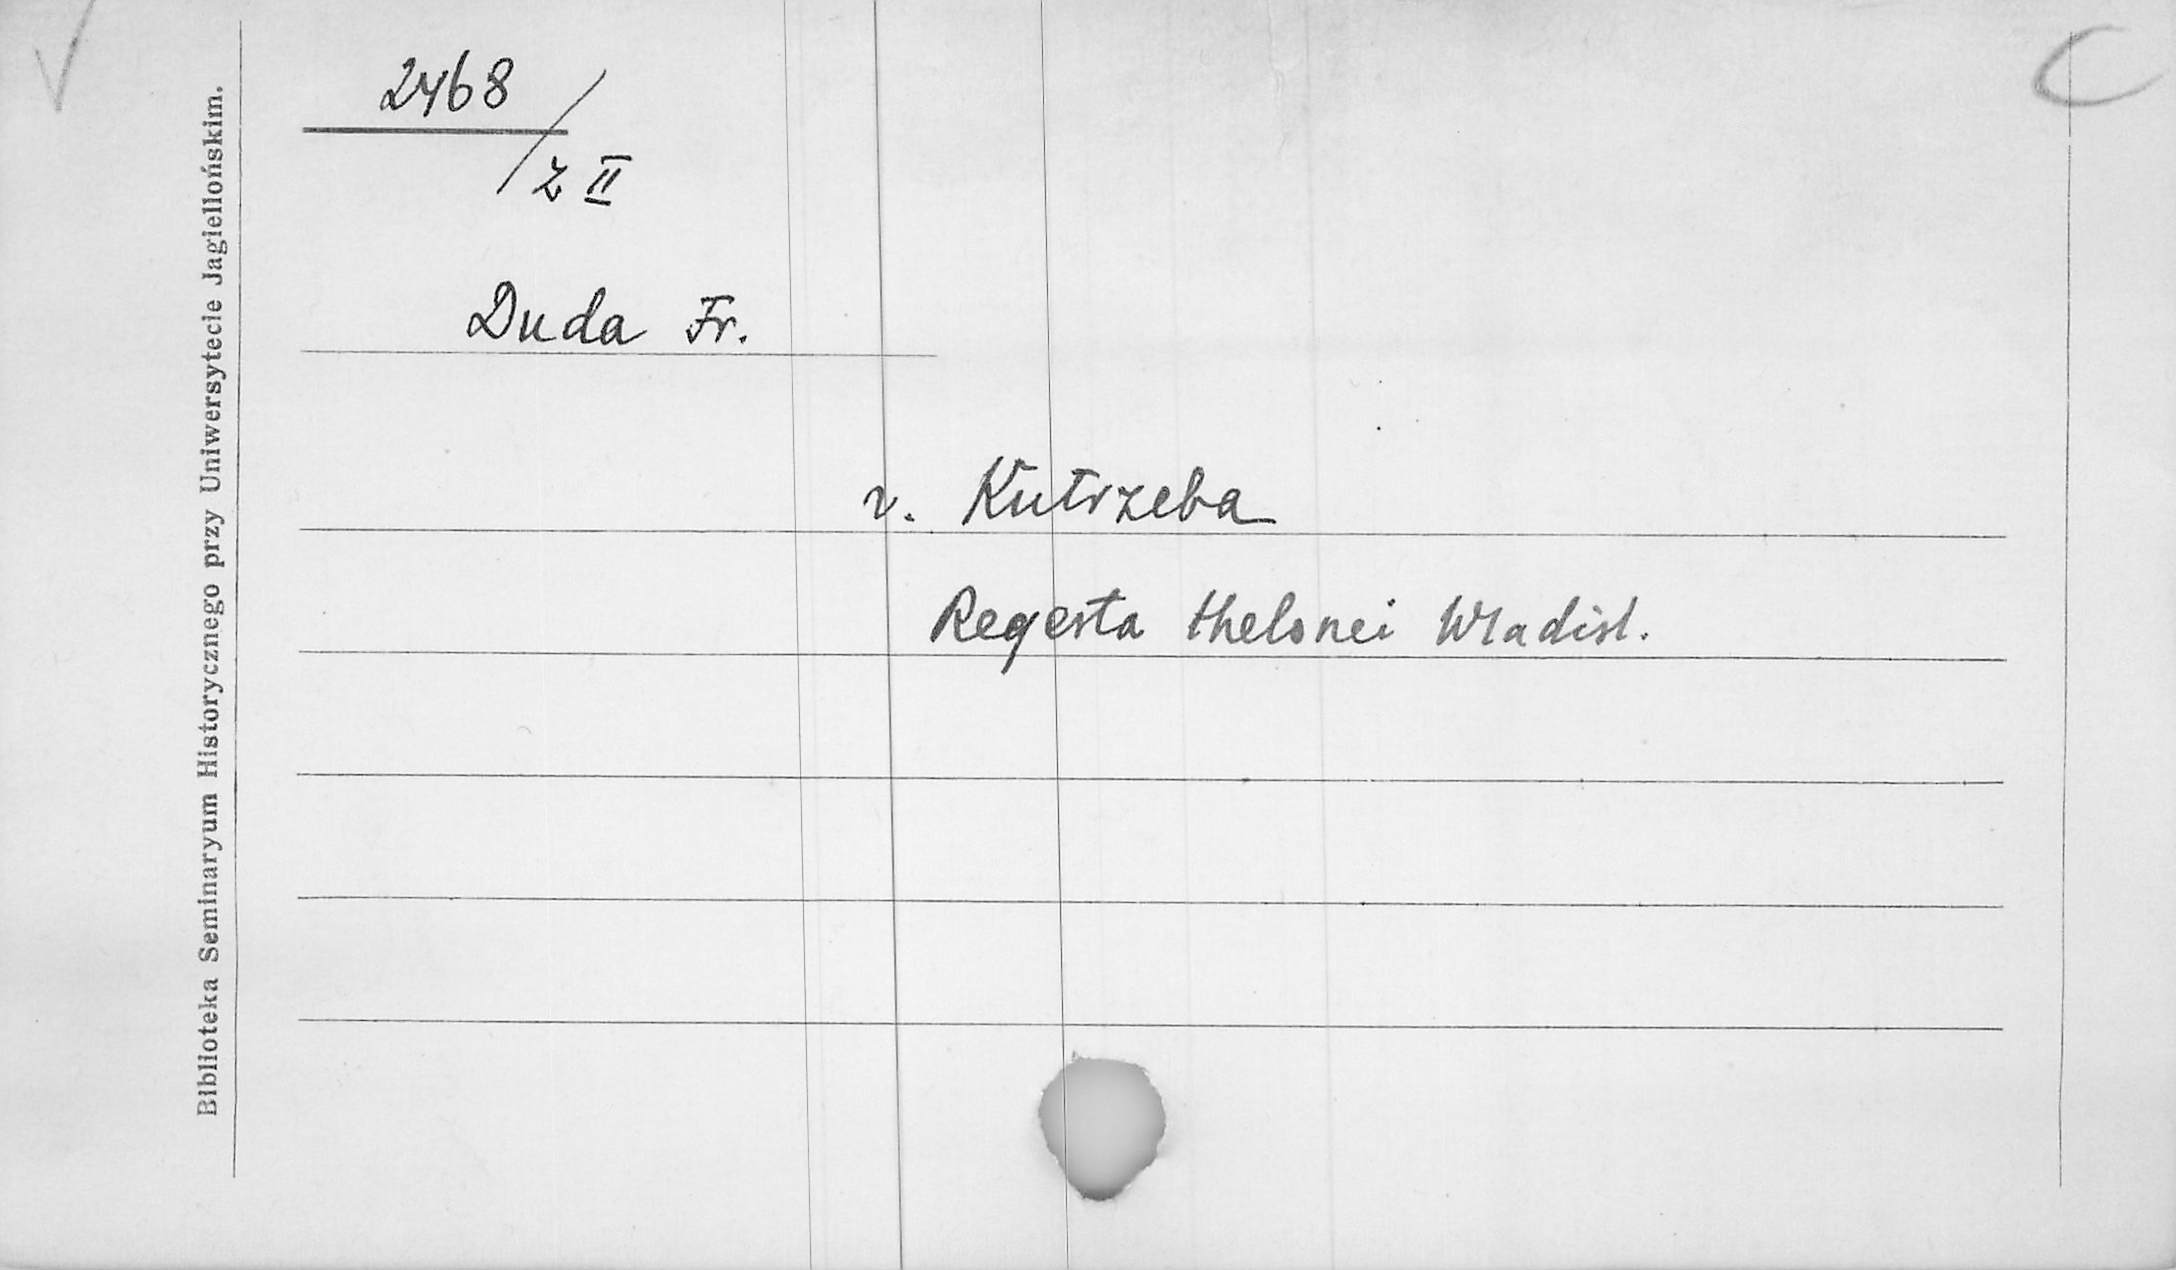 2468
/ z II
Duda Fr.
v. Kutrzeba
Regesta thelonei Wladisl.
Biblioteka Seminaryum Historycznego przy Uniwersytecie Jagiellońskim.